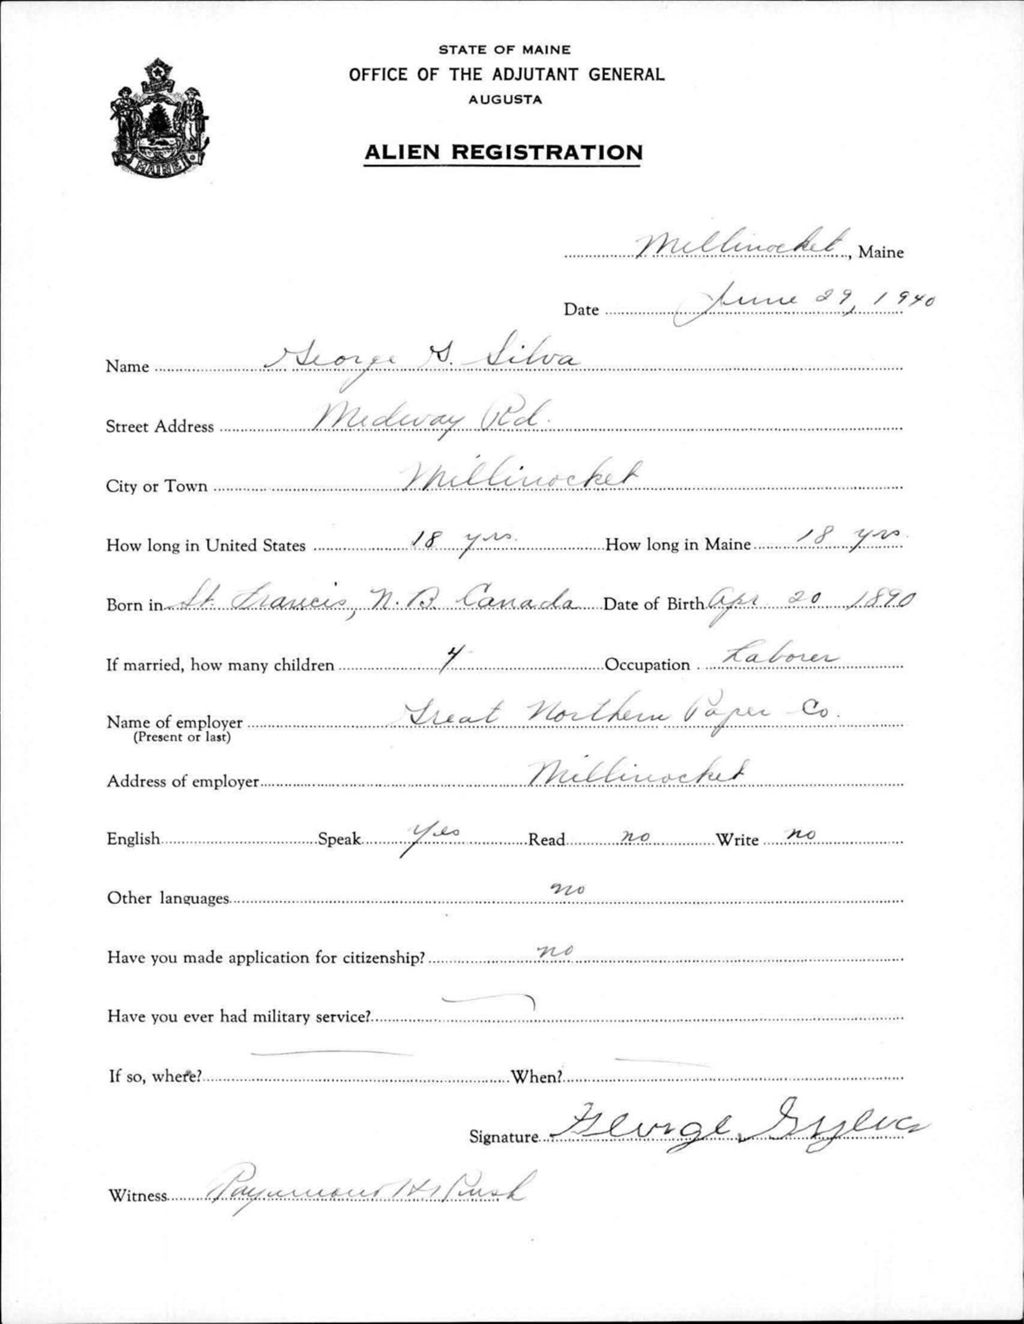 STATE OF MAINE
OFFICE OF THE ADJUTANT GENERAL
AUGUSTA
ALIEN REGISTRATION
MAINE
Millinocket, Maine
Date June 29, 1940
Name George G. Silva
Street Address Medway Rd.
City or Town Millinocket
How long in United States 18 yrs. How long in Maine 18 yrs.
Born in St. Francis, N. B. Canada Date of Birth Apr 20 1890
If married, how many children 4 Occupation Laborer
Name of employer Great Northern Paper Co.
(Present or last)
Address of employer Millinocket
English Speak Yes Read no Write no
Other languages no
Have you made application for citizenship? no
Have you ever had military service?
If so, where? When?
Signature George Sylva
Witness Raymond H Rush